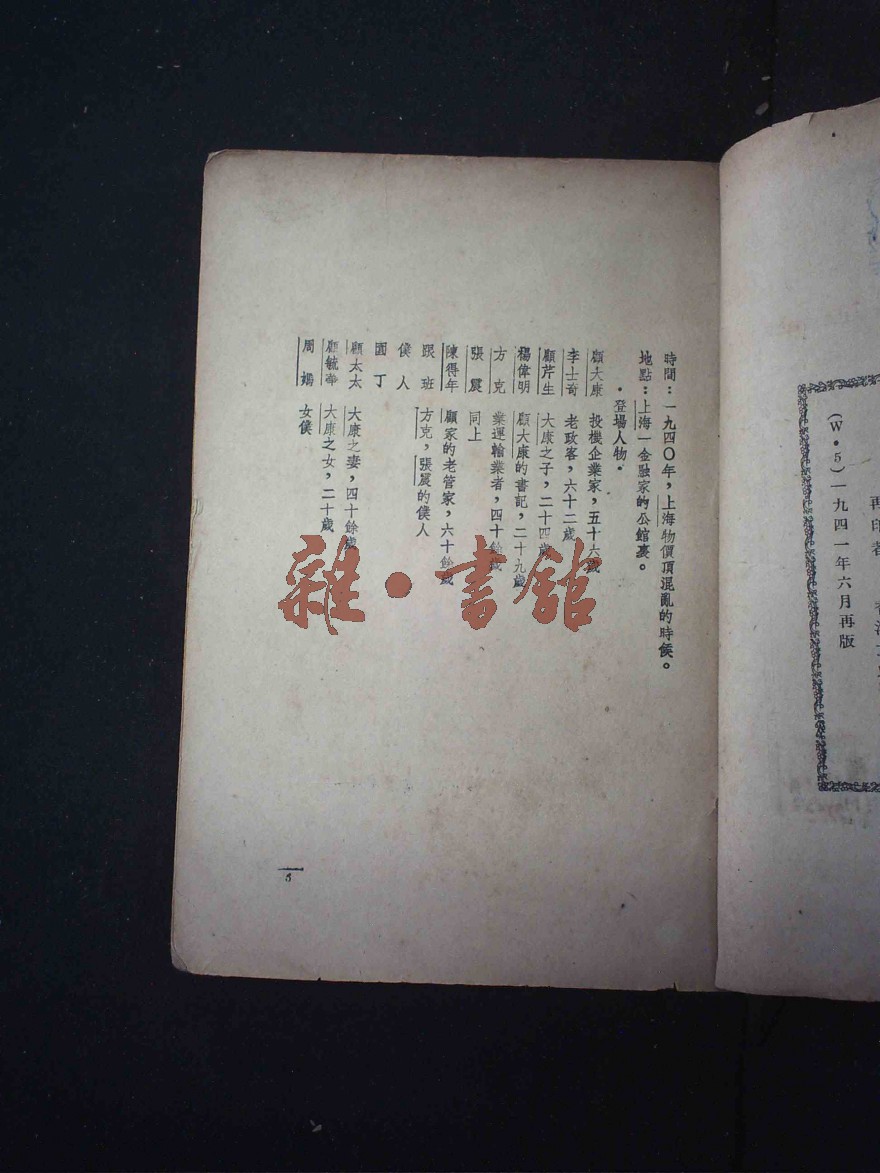 再印者
(W•5)一九四一年六月再版
時間：一九四〇年，上海物價頂混亂的時候。
地點：上海一金融家的公館裏。
•登場人物•
顧大康 投機企業家，五十六歲
李士奇 老政客，六十二歲
顧芹生 大康之子，二十四歲
楊偉明 顧大康的書記，二十九歲
方克 業運輸業者，四十餘歲
張震 同上
陳得年 顧家的老管家，六十餘歲
跟班 方克，張震的僕人
僕人
園丁
顧太太 大康之妻，四十餘歲
顧毓華 大康之女，二十歲
周媽 女僕
5
雜•書館